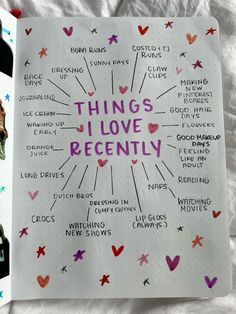 BOBA RUNS
COSTCO RUNS
SUNNY DAYS
RACE
DAYS
DRESSING
UP
CLAW
CLIPS
WAKING
UP
FLOWERS
JOURNALING
MAKING
NEW
PINTEREST
BOARDS
ICE CREAM
THINGS
I LOVE
RECENTLY
GOOD HAIR
DAYS
WAKING UP
EARLY
DRESSING
UP
GOOD MAKEUP
DAYS
ORANGE
JUICE
FEELING
LIKE AN
ADULT
LONG DRIVES
READING
NAPS
DUTCH BROS
WATCHING
MOVIES
CROCS
DRESSING IN
COMFY CLOTHES
WATCHING
NEW SHOWS
LIP GLOSS
(ALWAYS)